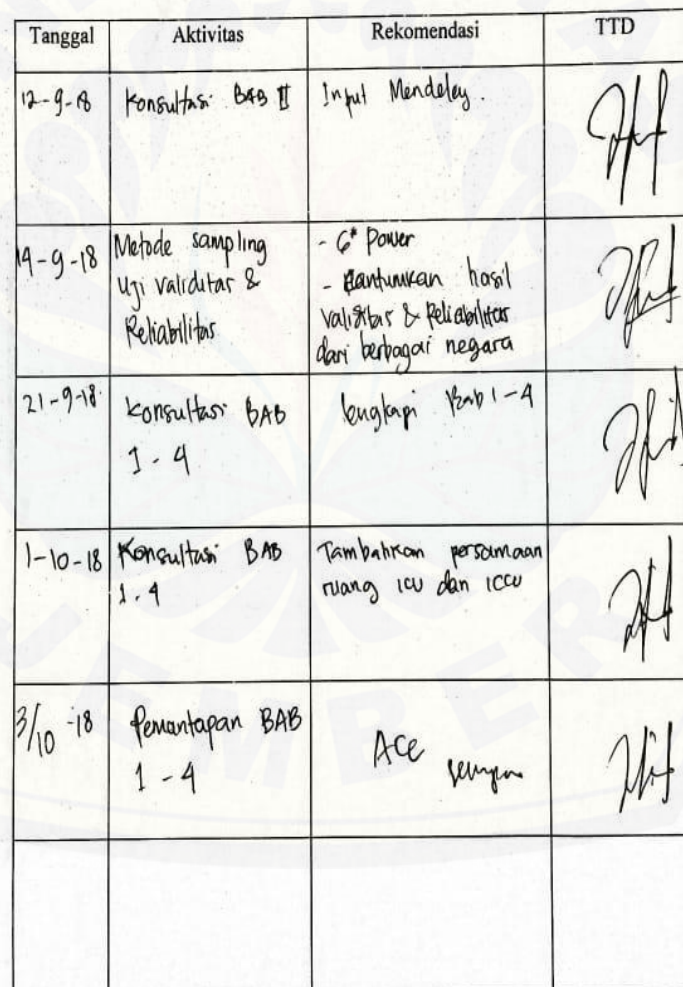 Tanggal Aktivitas Rekomendasi TTD
12-9-18 Konsultasi BAB II Input Mendeley.
19-9-18 Metode sampling
Uji validitas &
Reliabilitas
- G* Power
- Cantumkan hasil
validitas & Reliabilitas
dari berbagai negara
21-9-18 Konsultasi BAB
1 - 4
lengkapi Bab 1-4
1-10-18 Konsultasi BAB
1-4
Tambahkan persamaan
ruang ICU dan ICCU
3/10 -18 Pemantapan BAB
1 - 4
ACC
JEMBER